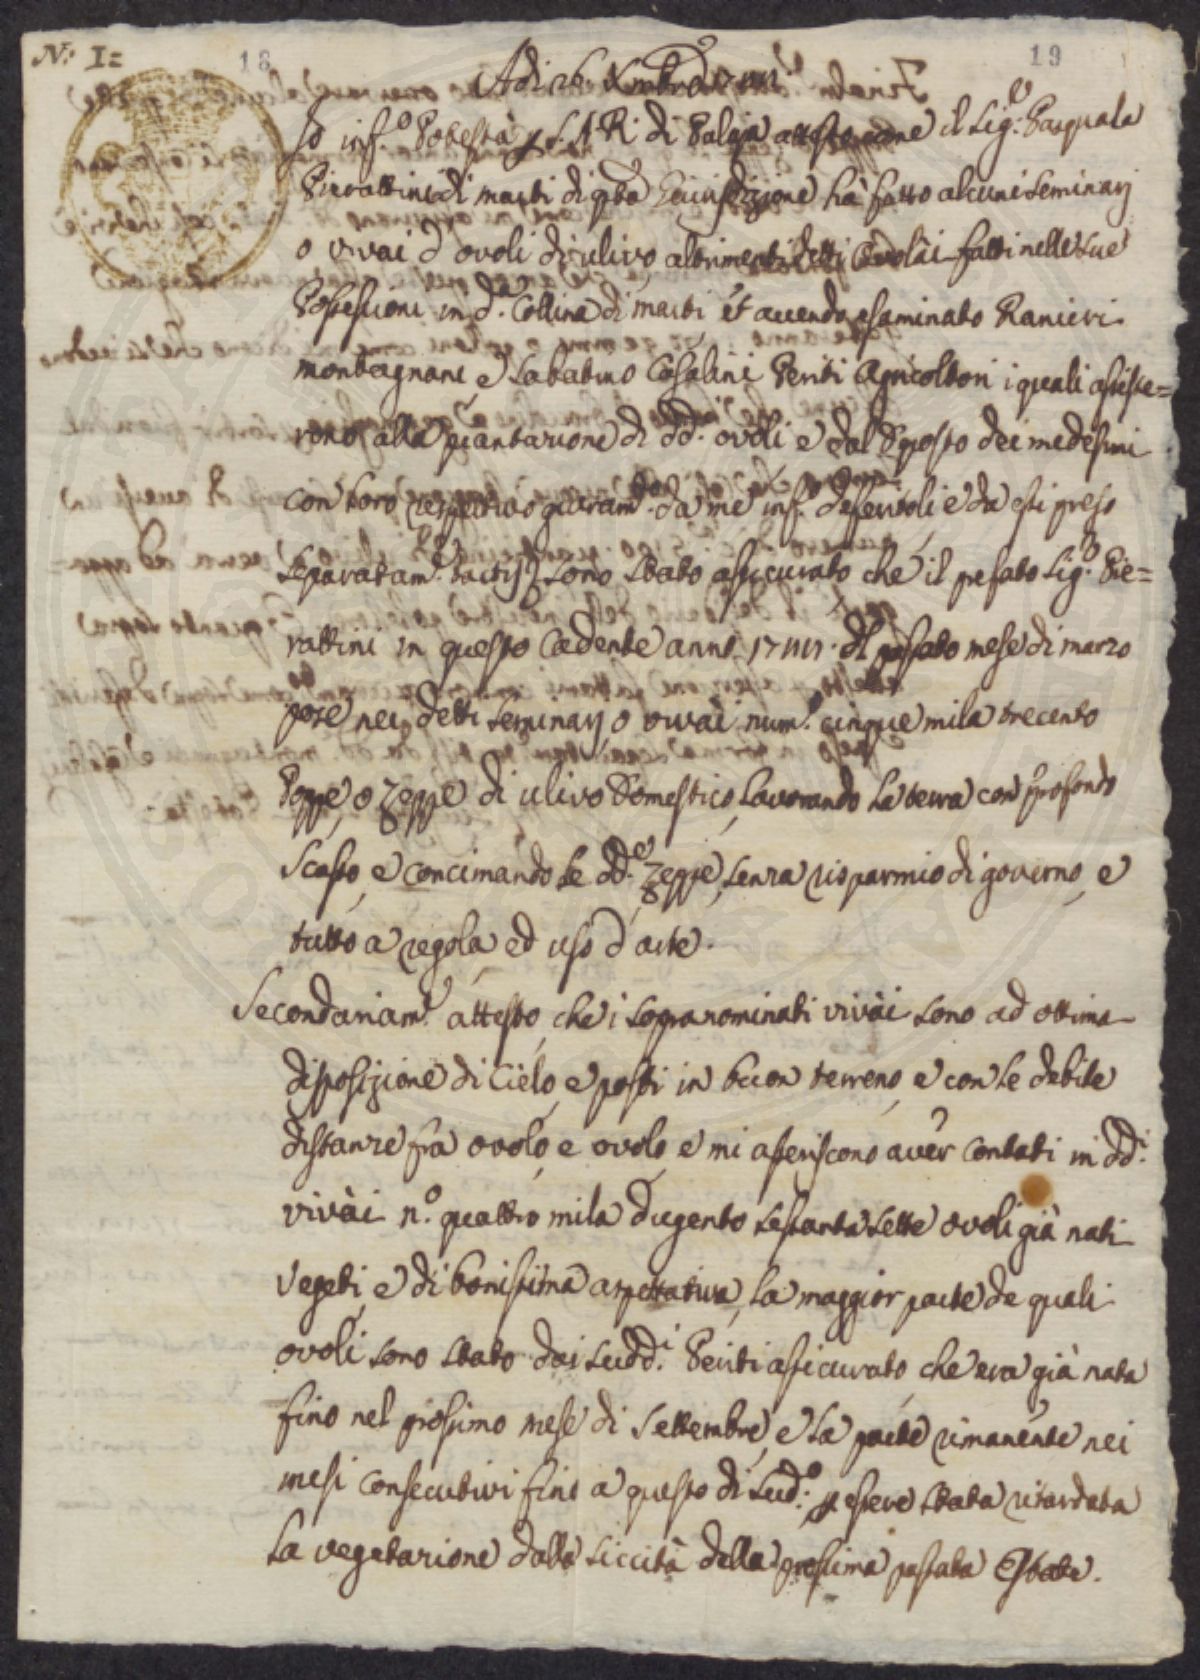 N.º I=
18
19
Adì 26. Xmbre 17
Io inf.º Potestà p S. A. R. di Palaja attesto come il Sig.re Pasquale
Pierattini di marti di qta Giurisdizione hà fatto alcuni Seminarj
o vivai d'ovoli di ulivo altrimenti detti Ovolai fatti nelle Sue
Possessioni in d.ª Collina di marti, et avendo esaminato Ranieri
montagnani e Sabatino Casalini Periti Agricoltori i quali assiste=
rono alla piantazione di dd. ovoli e dal Deposto dei medesimi
con loro respettivo giuram.to da me inf.º deferitoli e da essi preso
Separatam.e tactis sono stato assicurato che il prefato Sig.re Pie=
rattini in questo Cadente anno 17 del passato mese di marzo
pose nei detti Seminarj o vivài num.º cinque mila trecento
Poppe, o Zeppe di ulivo Domestico, lavorando la terra con profondo
Scasso, e concimando le dd.e Zeppe, senza risparmio di governo, e
tutto a regola, ed uso d'arte.
Secondariam.e attesto, che i sopranominati vivài sono ad ottima
disposizione di Cielo, e posti in buon terreno, e con le debite
distanze frà ovolo, e ovolo, e mi asseriscono aver contati in dd.i
vivài n.º quattro mila dugento sessanta sette ovoli già nati
vegeti, e di bonissima aspettativa, la maggior parte de quali
ovoli sono stato dai sudd.i Periti assicurato, che era già nata
fino nel prossimo mese di Settembre, e la parte rimanente nei
mesi consecutivi fino a questo dì sud.º p essere stata ritardata
la vegetazione dalla siccità della prossima passata Estate.